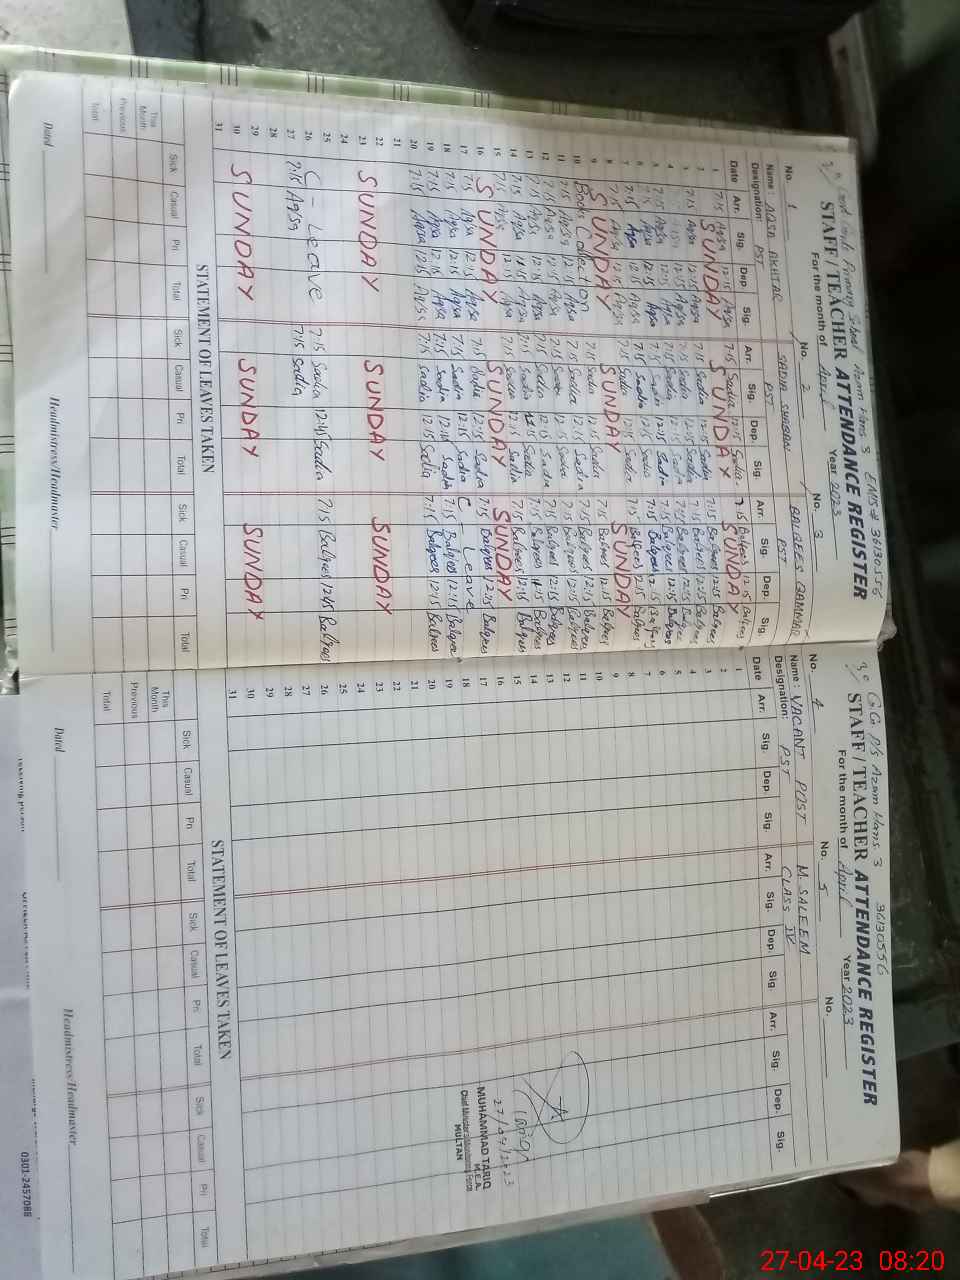 Primary School Azam Hans 3 EMIS# 36130556
STAFF / TEACHER ATTENDANCE REGISTER
For the month of April Year 2023
No. 1 No. 2 No. 3
Name: AQSA AKHTAR SADIA SHABAN BALQEES QAMMAR
Designation: PST PST PST
Date Arr. Sig. Dep. Sig. Arr. Sig. Dep. Sig. Arr. Sig. Dep. Sig.
1 7:15 Aqsa 12:15 Aqsa 7:15 Sadia 12:15 Sadia 7:15 Balqees 12:15 Balqees
2 SUNDAY SUNDAY SUNDAY
3 7:15 Aqsa 12:15 Aqsa 7:15 Sadia 12:15 Sadia 7:15 Balqees 12:15 Balqees
4 7:15 12:15 Aqsa 7:15 Sadia 12:15 Sadia 7:15 Balqees 12:15 Balqees
5 7:15 Aqsa 12:15 Aqsa 7:15 Sadia 12:15 Sadia 7:15 Balqees 12:15 Balqees
6 7:15 Aqsa 12:15 Aqsa 7:15 Sadia 12:15 Sadia 7:15 Balqees 12:15 Balqees
7 7:15 Aqsa 12:15 Aqsa 7:15 Sadia 12:15 Sadia 7:15 Balqees 12:15 Balqees
8 7:15 Aqsa 12:15 Aqsa 7:15 Sadia 12:15 Sadia 7:15 Balqees 12:15 Balqees
9 SUNDAY SUNDAY SUNDAY
10 Books Collection 7:15 Sadia 12:15 Sadia 7:15 Balqees 12:15 Balqees
11 7:15 Aqsa 12:15 Aqsa 7:15 Sadia 12:15 Sadia 7:15 Balqees 12:15 Balqees
12 7:15 Aqsa 12:15 Aqsa 7:15 Sadia 12:15 Sadia 7:15 Balqees 12:15 Balqees
13 7:15 Aqsa 12:15 Aqsa 7:15 Sadia 12:15 Sadia 7:15 Balqees 12:15 Balqees
14 7:15 Aqsa 11:15 Aqsa 7:15 Sadia 11:15 Sadia 7:15 Balqees 11:15 Balqees
15 7:15 Aqsa 12:15 Aqsa 7:15 Sadia 12:15 Sadia 7:15 Balqees 12:15 Balqees
16 SUNDAY SUNDAY SUNDAY
17 7:15 Aqsa 12:15 Aqsa 7:15 Sadia 12:15 Sadia 7:15 Balqees 12:15 Balqees
18 7:15 Aqsa 12:15 Aqsa 7:15 Sadia 12:15 Sadia C - Leave
19 7:15 Aqsa 12:15 Aqsa 7:15 Sadia 12:15 Sadia 7:15 Balqees 12:15 Balqees
20 7:15 Aqsa 12:15 Aqsa 7:15 Sadia 12:15 Sadia 7:15 Balqees 12:15 Balqees
21
22
23 SUNDAY SUNDAY SUNDAY
24
25
26 C - Leave 7:15 Sadia 12:45 Sadia 7:15 Balqees 12:45 Balqees
27 7:15 Aqsa 7:15 Sadia
28
29
30 SUNDAY SUNDAY SUNDAY
31
STATEMENT OF LEAVES TAKEN
Sick Casual Pri Total Sick Casual Pri Total Sick Casual Pri Total
This Month
Previous
Total
Dated Headmistress/Headmaster
P/S Azam Hans 3 36130556
STAFF / TEACHER ATTENDANCE REGISTER
For the month of April Year 2023
No. 4 No. 5 No.
Name: VACANT POST M. SALEEM
Designation: PST CLASS IV
Date Arr. Sig. Dep. Sig. Arr. Sig. Dep. Sig. Arr. Sig. Dep. Sig.
1
2
3
4
5
6
7
8
9
10
11
12
13
14
15
16
17
18
19
20
21
22
23
24
25
26
27
28
29
30
31
27/04/2023
MUHAMMAD TARIQ
M.E.A.
Chief Minister's Monitoring Force
MULTAN
STATEMENT OF LEAVES TAKEN
Sick Casual Pri Total Sick Casual Pri Total Sick Casual Pri Total
This Month
Previous
Total
Dated Headmistress/Headmaster
0301-2457088
27-04-23 08:20